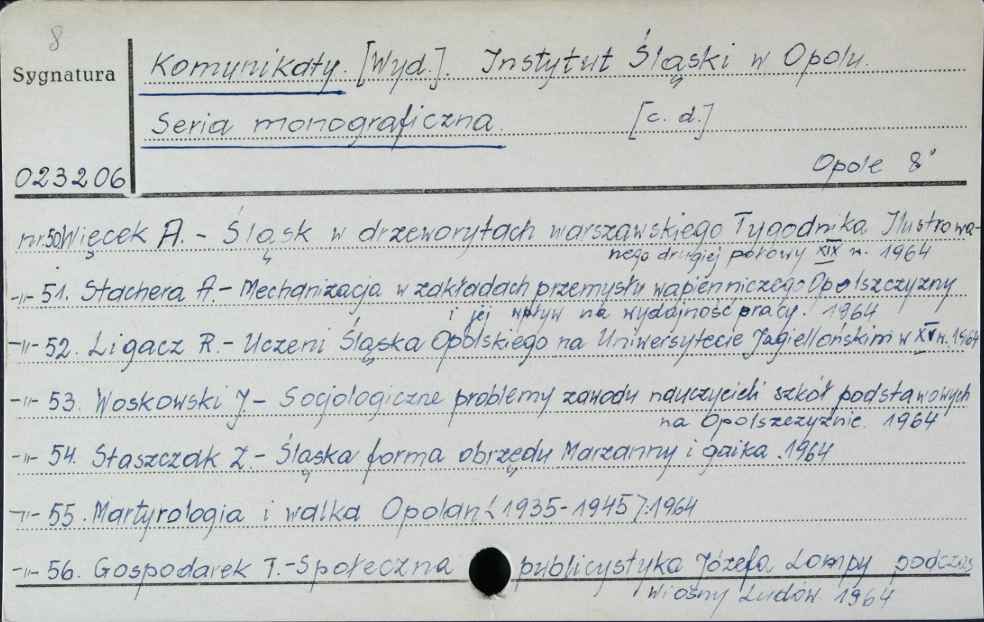 8
Sygnatura
Komunikaty. [Wyd.]. Instytut Śląski w Opolu.
Seria monograficzna. [c. d.]
023206
Opole 8°
nr.50. Więcek A. - Śląsk w drzeworytach warszawskiego Tygodnika Ilustrowa-
nego drugiej połowy XIX w. 1964
-"- 51. Stachera A. - Mechanizacja w zakładach przemysłu wapienniczego Opolszczyzny
i jej wpływ na wydajność pracy. 1964
-"- 52. Ligacz R. - Uczeni Śląska Opolskiego na Uniwersytecie Jagiellońskim w XV w. 1964
-"- 53. Woskowski J. - Socjologiczne problemy zawodu nauczycieli szkół podstawowych
na Opolszczyźnie. 1964
-"- 54. Staszczak Z - Śląska forma obrzędu Marzanny i gaika. 1964
-"- 55. Martyrologia i walka Opolan <1935-1945>. 1964
-"- 56. Gospodarek T. - Społeczna publicystyka Józefa Lompy podczas
Wiosny Ludów. 1964